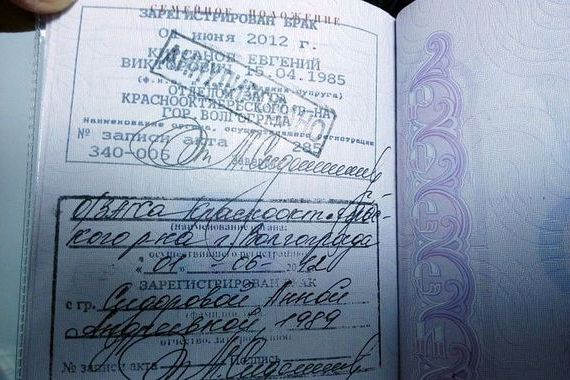 СЕМЕЙНОЕ ПОЛОЖЕНИЕ
ЗАРЕГИСТРИРОВАН БРАК
июня 2012 г.
ЕВГЕНИЙ
15.04.1985
супруга)
ОТДЕЛОМ ЗАГСА
КРАСНООКТЯБРЬСКОГО Р-НА
ГОР. ВОЛГОГРАДА
Наименование органа, осуществившего регистрацию
№ записи акта 285
340-006
ОЗАГСа Краснооктябрьс-
кого р-на г. Волгограда
(наименование органа,
осуществившего регистрацию)
ЗАРЕГИСТРИРОВАН БРАК
с гр. Сидоровой Анной
Андреевной, 1989
отчество, дата рождения)
№ записи акта Подпись